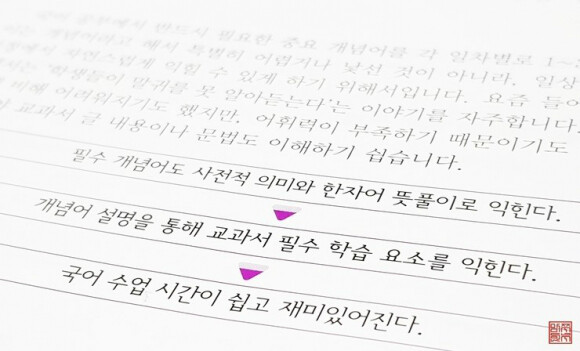 국어 공부에서 반드시 필요한 중요 개념어를 각 일차별로 1~
개념어라고 해서 특별히 어렵거나 낯선 것이 아니라. 일상
에서 자연스럽게 익힐 수 있게 하기 위해서입니다. 요즘 들어
'학생들이 말귀를 못 알아듣는다'는 이야기를 자주합니다.
비해 어려워지기도 했지만. 어휘력이 부족하기 때문이기도
교과서 글 내용이나 문법도 이해하기 쉽습니다.
필수 개념어도 사전적 의미와 한자어 뜻풀이로 익힌다.
개념어 설명을 통해 교과서 필수 학습 요소를 익힌다.
국어 수업 시간이 쉽고 재미있어진다.